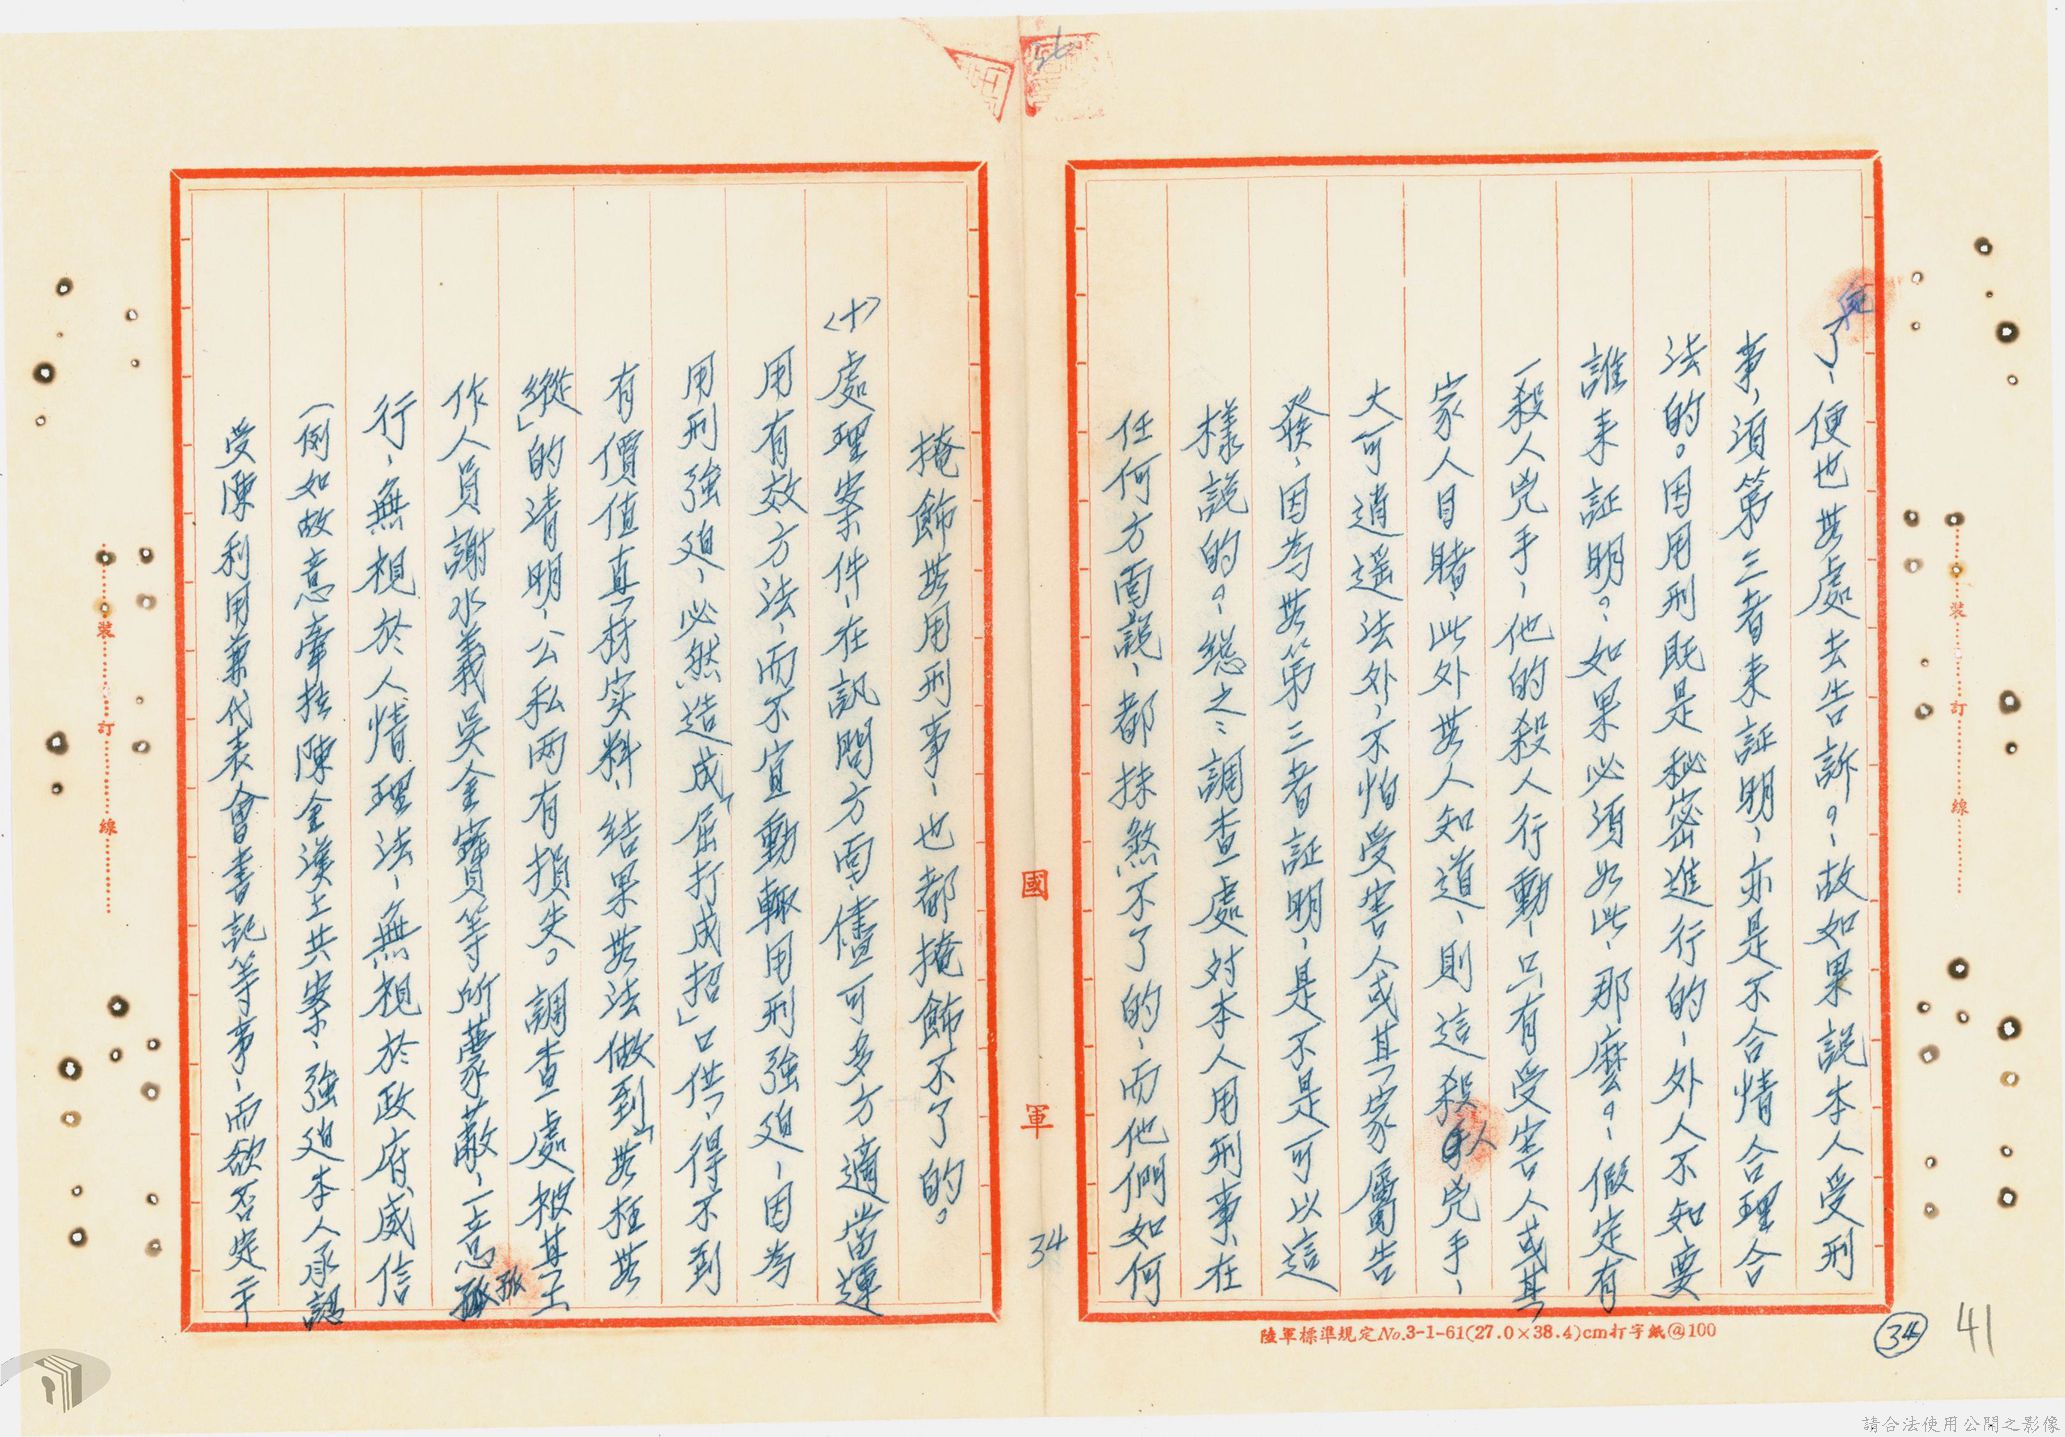 死
了、便也無處去告訴。、故如果説本人受刑
事、須第三者来証明、亦是不合情合理合
法的。因用刑既是秘密進行的、外人不知要
誰来証明。如果必須如此、那麼。、假定有
一殺人兇手、他的殺人行動、只有受害人或其
家人目睹、此外無人知道、則這殺人兇手、
大可逍遥法外、不怕受害人或其家屬告
發、因為無第三者証明、是不是可以這
樣説的。、総之：調查處対本人用刑事、在
任何方面説、都抹煞不了的、而他們如何
掩飾無用刑事、也都掩飾不了的。
〈十〉處理案件、在訊問方面、儘可多方適當運
用有效方法、而不宜動輒用刑強迫、因為
用刑強迫、必然造成「屈打成招」口供、得不到
有價值真材実料、結果無法做到「無枉無
縱」的清明、公私両有損失。調查處被其工
作人員謝水義吳金寶等所蒙蔽、一意孤
行、無視於人情理法、無視於政府威信
（例如故意牽扯陳金漢上共案、強迫本人承認
受陳利用兼代表會書記等事、而欲否定三
國軍
34
34
41
56
裝訂線
裝訂線
陸軍標準規定No.3-1-61(27.0×38.4)cm打字紙@100
請合法使用公開之影像